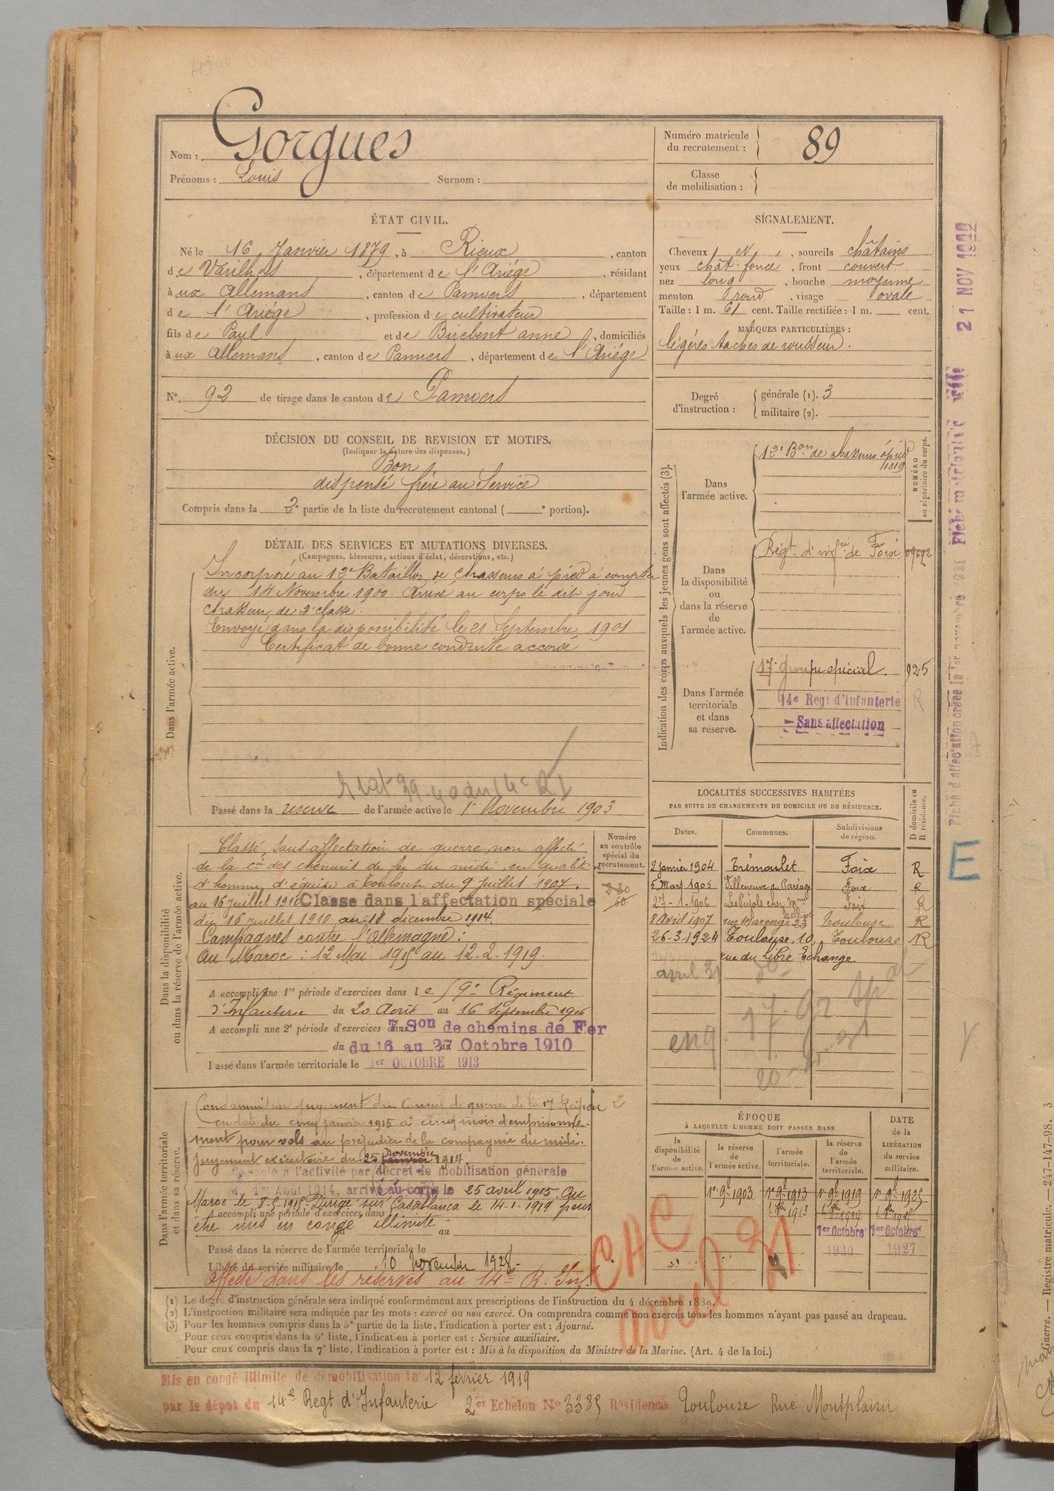 Nom : Gorgues
Prénoms : Louis Surnom :
Numéro matricule du recrutement : 89
Classe de mobilisation :
ÉTAT CIVIL.
Né le 16 Janvier 1879, à Rieux, canton
de Varilhes, département de l'Ariége, résidant
à ux Allemans, canton de Pamiers, département
de l'Ariége, profession de cultivateur
fils de Paul et de Birebent anne, domiciliés
à ux Allemans, canton de Pamiers, département de l'Ariége
N° 92 de tirage dans le canton de Pamiers
SIGNALEMENT.
Cheveux et, sourcils châtains
yeux chât. foncé, front couvert
nez long, bouche moyenne
menton rond, visage ovale
Taille : 1 m. 61 cent. Taille rectifiée : 1 m. cent.
MARQUES PARTICULIÈRES :
légères taches de rousseur.
Degré d'instruction : générale (1). 3
militaire (2).
DÉCISION DU CONSEIL DE REVISION ET MOTIFS.
(Indiquer la nature des dispenses.)
Bon
dispensé frère au Service
Compris dans la 2e partie de la liste du recrutement cantonal ( e portion).
DÉTAIL DES SERVICES ET MUTATIONS DIVERSES.
(Campagnes, blessures, actions d'éclat, décorations, etc.)
Dans l'armée active.
Incorporé au 12e Bataillon de Chasseurs à pied à compter
du 14 Novembre 1900. Arrivé au corps le dit jour
chasseur de 2e classe.
Envoyé dans la disponibilité le 21 Septembre 1901
Certificat de bonne conduite accordé
Passé dans la reserve de l'armée active le 1er Novembre 1903
Indication des corps auxquels les jeunes gens sont affectés (3).
NUMÉRO au répertoire du corps.
Dans l'armée active.
12e Bon de chasseurs à pied
11019
Dans la disponibilité ou dans la réserve de l'armée active.
Régt. d'infie de Foix
Dans l'armée territoriale et dans sa réserve.
17e groupe spécial. 925
14e Regt d'Infanterie R
Sans affectation
Dans la disponibilité ou dans la réserve de l'armée active.
Numéro au contrôle spécial du recrutement.
Classé, sans affectation de guerre non affecté
de la Cie des chemins de fer du midi en qualité
d'homme d'équipe à Toulouse du 9 juillet 1907.
au 16 juillet 1910 Classe dans l'affectation spéciale
du 16 juillet 1910 au 18 décembre 1914.
Campagnes contre l'Allemagne :
Au Maroc : 12 Mai 1915 au 12-2-1919.
A accompli une 1re période d'exercices dans le 59e Régiment
d'Infanterie du 20 Août au 16 Septembre 1906
A accompli une 2e période d'exercices dans 7 Son de chemins de Fer
du 16 au 27 Octobre 1910
Passé dans l'armée territoriale le 1er OCTOBRE 1913
LOCALITÉS SUCCESSIVES HABITÉES
PAR SUITE DE CHANGEMENTS DE DOMICILE OU DE RÉSIDENCE.
Dates. Communes. Subdivisions de région. D domicile ou R résidence.
2 janvier 1904 Trémoulet Foix R
5 Mars 1905 Villeneuve du Paréage Foix R
27-1-1906 Foix R
8 Avril 1907 rue Marengo 23 Toulouse R
26-3-1924 Toulouse, 10, Toulouse R
rue du Libre Echange
avril 31
E
Dans l'armée territoriale et dans sa réserve.
Condamné par jugement du Conseil de guerre de la 17e Région
en date du cinq janvier 1915 à cinq mois d'emprisonne-
ment pour vols au préjudice de la compagnie du midi.
jugement exécutoire du 25 Novembre 1914.
à l'activité par décret de mobilisation générale
du 1er Août 1914, arrivé au corps le 25 avril 1915 Au
Maroc le 8-5-1915. Dirigé sur Casablanca le 14-1-1919 pour
A accompli une période d'exercices dans
être mis en congé illimité
du au
Passé dans la réserve de l'armée territoriale le
Libéré du service militaire le 10 novembre 1928.
affecté dans les réserves au 14e R. Inf
ÉPOQUE
À LAQUELLE L'HOMME DOIT PASSER DANS
la disponibilité de l'armée active. la réserve de l'armée active. l'armée territoriale. la réserve de l'armée territoriale.
DATE de la LIBÉRATION du service militaire.
1er 9bre 1903 1er 9bre 1913 1er 9bre 1919 1er 9bre 1925
1er Octobre 1er Octobre
1920 1927
CAC
avril 31
(1) Le degré d'instruction générale sera indiqué conformément aux prescriptions de l'instruction du 4 décembre 1889.
(2) L'instruction militaire sera indiquée par les mots : exercé ou non exercé. On comprendra comme non exercés tous les hommes n'ayant pas passé au drapeau.
(3) Pour les hommes compris dans la 5e partie de la liste, l'indication à porter est : Ajourné.
Pour ceux compris dans la 6e liste, l'indication à porter est : Service auxiliaire.
Pour ceux compris dans la 7e liste, l'indication à porter est : Mis à la disposition du Ministre de la Marine. (Art. 4 de la loi.)
Mis en congé illimité de démobilisation le 12 février 1919
par le dépôt du 14e Regt d'Infanterie 2e Echelon No 3385 Résidence Toulouse Rue Montplaisir
21 NOV 1922
Guerre. — Registre matricule. — 247-147-98. 3